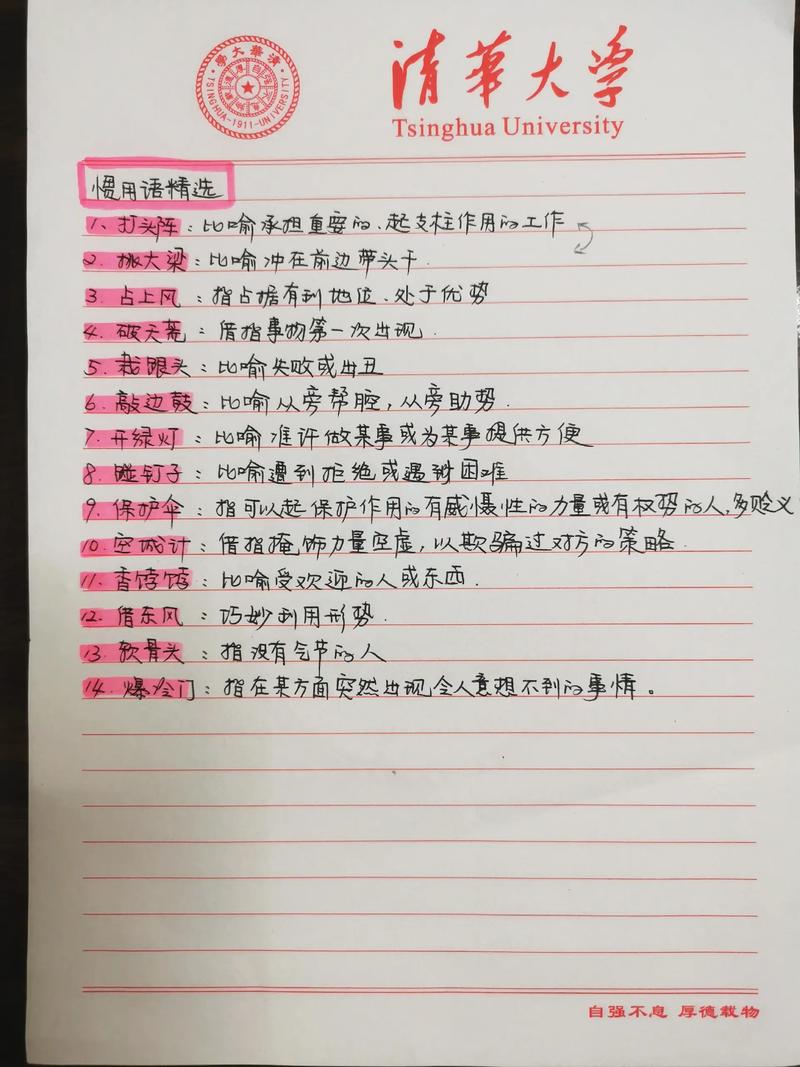 清華大學
TSINGHUA-1911-UNIVERSITY
清華大学
Tsinghua University
惯用语精选
1、打头阵：比喻承担重要的、起支柱作用的工作
2. 挑大梁：比喻冲在前边带头干.
3. 占上风：指占据有利地位、处于优势
4. 破天荒：借指事物第一次出现.
5. 栽跟头：比喻失败或出丑
6. 敲边鼓：比喻从旁帮腔，从旁助势.
7. 开绿灯：比喻准许做某事或为某事提供方便
8. 碰钉子：比喻遭到拒绝或遇到困难
9. 保护伞：指可以起保护作用的有威慑性的力量或有权势的人，多贬义
10. 空城计：借指掩饰力量空虚，以欺骗过对方的策略.
11. 香饽饽：比喻受欢迎的人或东西.
12. 借东风：巧妙利用形势.
13. 软骨头：指没有气节的人
14. 爆冷门：指在某方面突然出现令人意想不到的事情。
自强不息 厚德载物